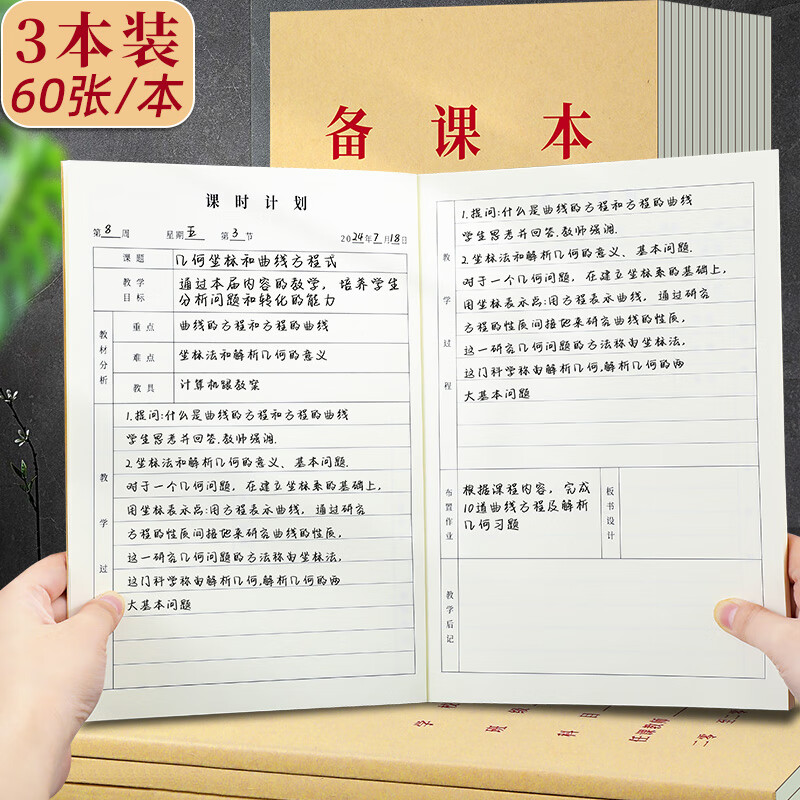 3本装
60张/本
备课本
课时计划
第 8 周 星期 五 第 3 节 2024年7月18日
课题 几何坐标和曲线方程式
教学目标 通过本届内容的教学，培养学生
分析问题和转化的能力
教材分析
重点 曲线的方程和方程的曲线
难点 坐标法和解析几何的意义
教具 计算机跟教案
教学过
1.提问:什么是曲线的方程和方程的曲线
学生思考并回答.教师强调.
2.坐标法和解析几何的意义、基本问题.
对于一个几何问题，在建立坐标系的基础上，
用坐标表示点:用方程表示曲线，通过研究
方程的性质间接地来研究曲线的性质，
这一研究几何问题的方法称为坐标法，
这门科学称为解析几何.解析几何的两
大基本问题
教学过程
1.提问:什么是曲线的方程和方程的曲线
学生思考并回答.教师强调.
2.坐标法和解析几何的意义、基本问题.
对于一个几何问题，在建立坐标系的基础上，
用坐标表示点:用方程表示曲线，通过研究
方程的性质间接地来研究曲线的性质，
这一研究几何问题的方法称为坐标法，
这门科学称为解析几何.解析几何的两
大基本问题
布置作业 根据课程内容，完成
10道曲线方程及解析
几何习题
板书设计
教学后记
学
班
科目
任课教师
二零